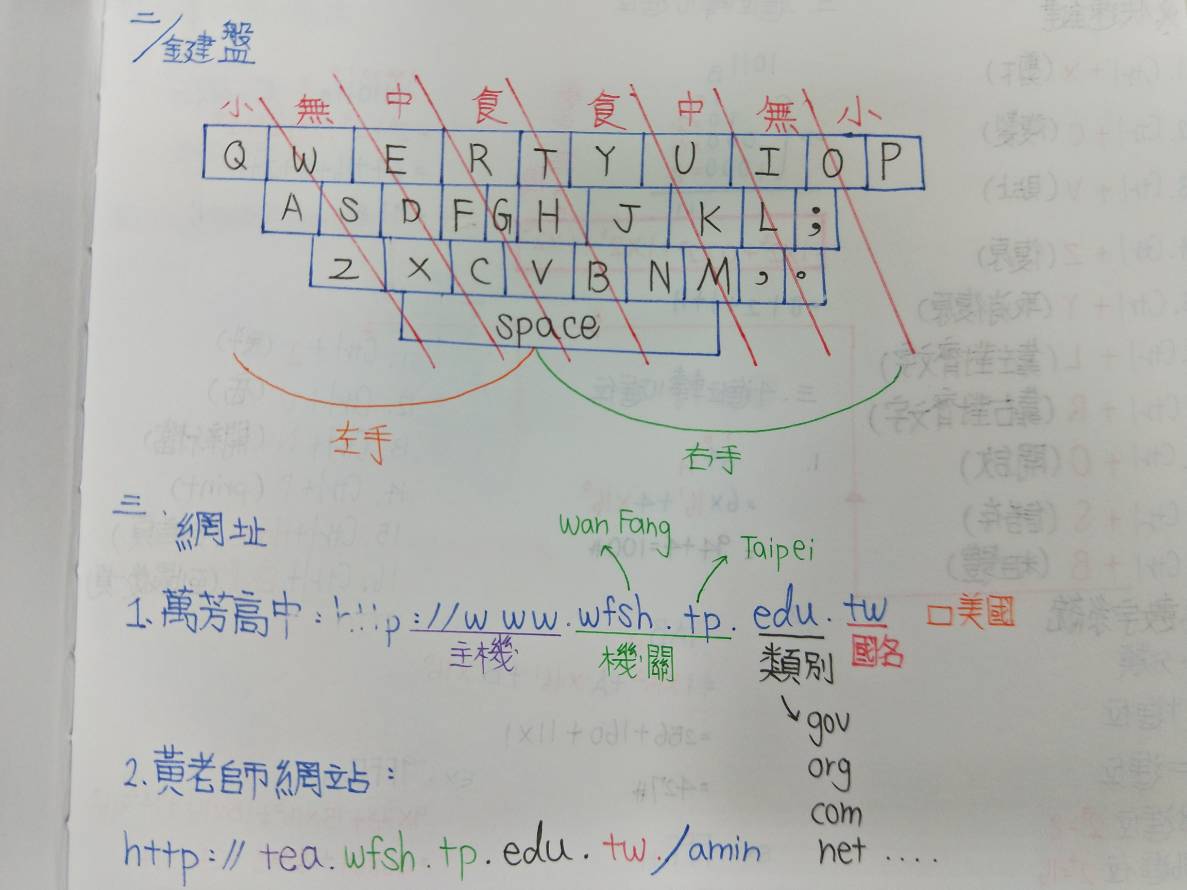 二/鍵盤
小 無 中 食 食 中 無 小
Q W E R T Y U I O P
A S D F G H J K L ;
Z X C V B N M , .
space
左手 右手
三. 網址
wan Fang Taipei
1. 萬芳高中: http://www.wfsh.tp.edu.tw □美國
主機 機關 類別 國名
gov
org
com
net ....
2. 黃老師網站:
http://tea.wfsh.tp.edu.tw./amin